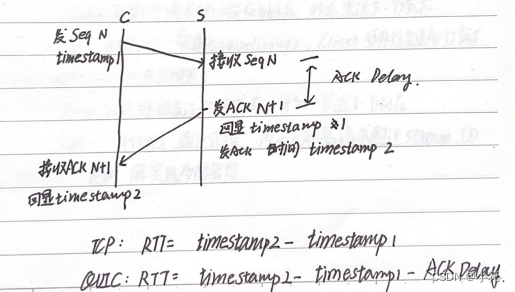 C S
发 Seq N
timestamp1
接收 Seq N
ACK Delay.
发ACK N+1
回显 timestamp 1
发ACK 时间 timestamp 2
接收ACK N+1
回显timestamp2
TCP: RTT= timestamp2 - timestamp1
QUIC: RTT= timestamp2 - timestamp1 - ACK Delay.